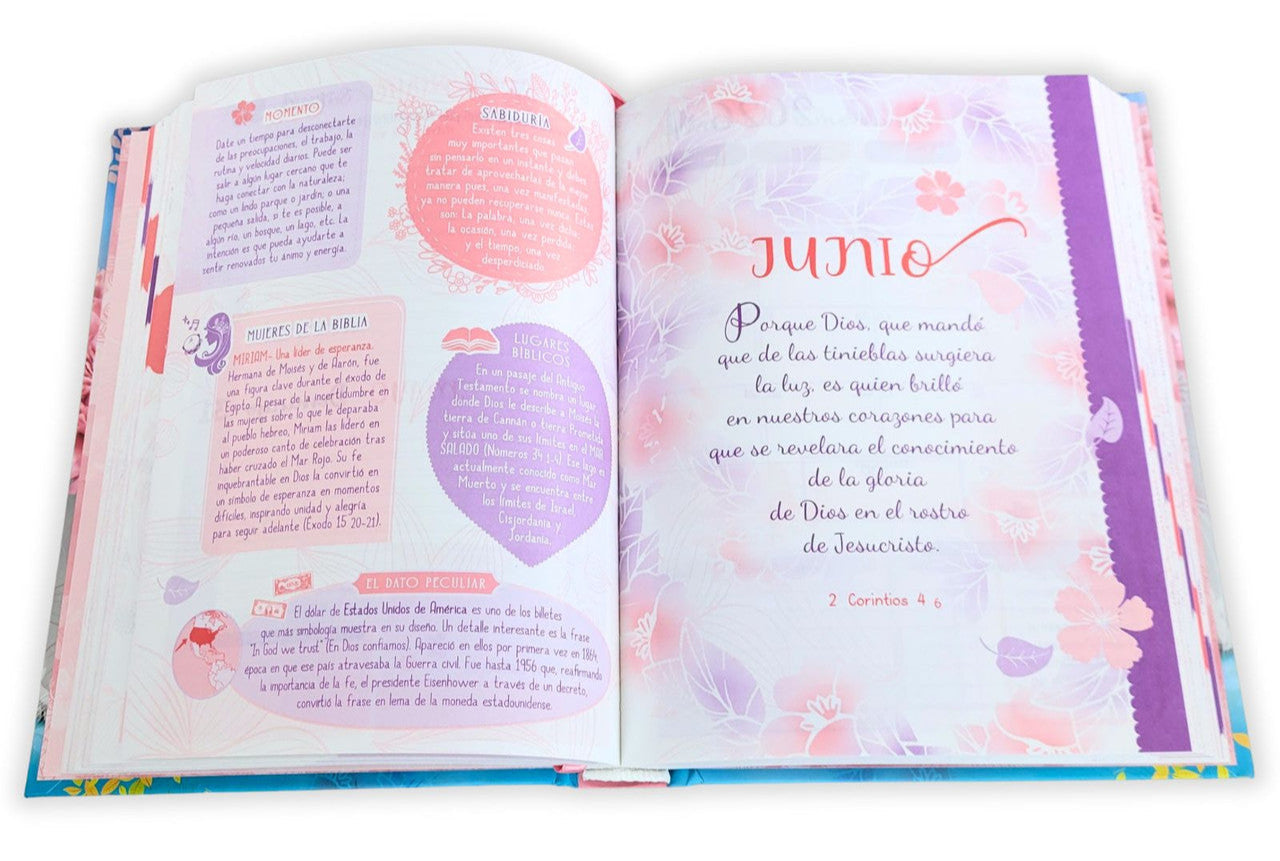 MOMENTO
Date un tiempo para desconectarte
de las preocupaciones, el trabajo, la
rutina y velocidad diarios. Puede ser
salir a algún lugar cercano que te
haga conectar con la naturaleza;
como un lindo parque o jardín; o una
pequeña salida, si te es posible, a
algún río, un bosque, un lago, etc. La
intención es que pueda ayudarte a
sentir renovados tu ánimo y energía.
SABIDURÍA
Existen tres cosas
muy importantes que pasan
sin pensarlo en un instante y debes
tratar de aprovecharlas de la mejor
manera pues, una vez manifestadas,
ya no pueden recuperarse nunca. Estas
son: La palabra, una vez dicha;
la ocasión, una vez perdida;
y el tiempo, una vez
desperdiciado.
MUJERES DE LA BIBLIA
MIRIAM- Una líder de esperanza.
Hermana de Moisés y de Aarón, fue
una figura clave durante el éxodo de
Egipto. A pesar de la incertidumbre en
las mujeres sobre lo que le deparaba
al pueblo hebreo, Miriam las lideró en
un poderoso canto de celebración tras
haber cruzado el Mar Rojo. Su fe
inquebrantable en Dios la convirtió en
un símbolo de esperanza en momentos
difíciles, inspirando unidad y alegría
para seguir adelante (Éxodo 15 20-21).
LUGARES
BÍBLICOS
En un pasaje del Antiguo
Testamento se nombra un lugar
donde Dios le describe a Moisés la
tierra de Cannán o tierra Prometida
y sitúa uno de sus límites en el MAR
SALADO (Números 34 1-4). Ese lago es
actualmente conocido como Mar
Muerto y se encuentra entre
los límites de Israel,
Cisjordania y
Jordania.
EL DATO PECULIAR
El dólar de Estados Unidos de América es uno de los billetes
que más simbología muestra en su diseño. Un detalle interesante es la frase
"In God we trust" (En Dios confiamos). Apareció en ellos por primera vez en 1864,
época en que ese país atravesaba la Guerra civil. Fue hasta 1956 que, reafirmando
la importancia de la fe, el presidente Eisenhower a través de un decreto,
convirtió la frase en lema de la moneda estadounidense.
JUNIO
Porque Dios, que mandó
que de las tinieblas surgiera
la luz, es quien brilló
en nuestros corazones para
que se revelara el conocimiento
de la gloria
de Dios en el rostro
de Jesucristo.
2 Corintios 4 6